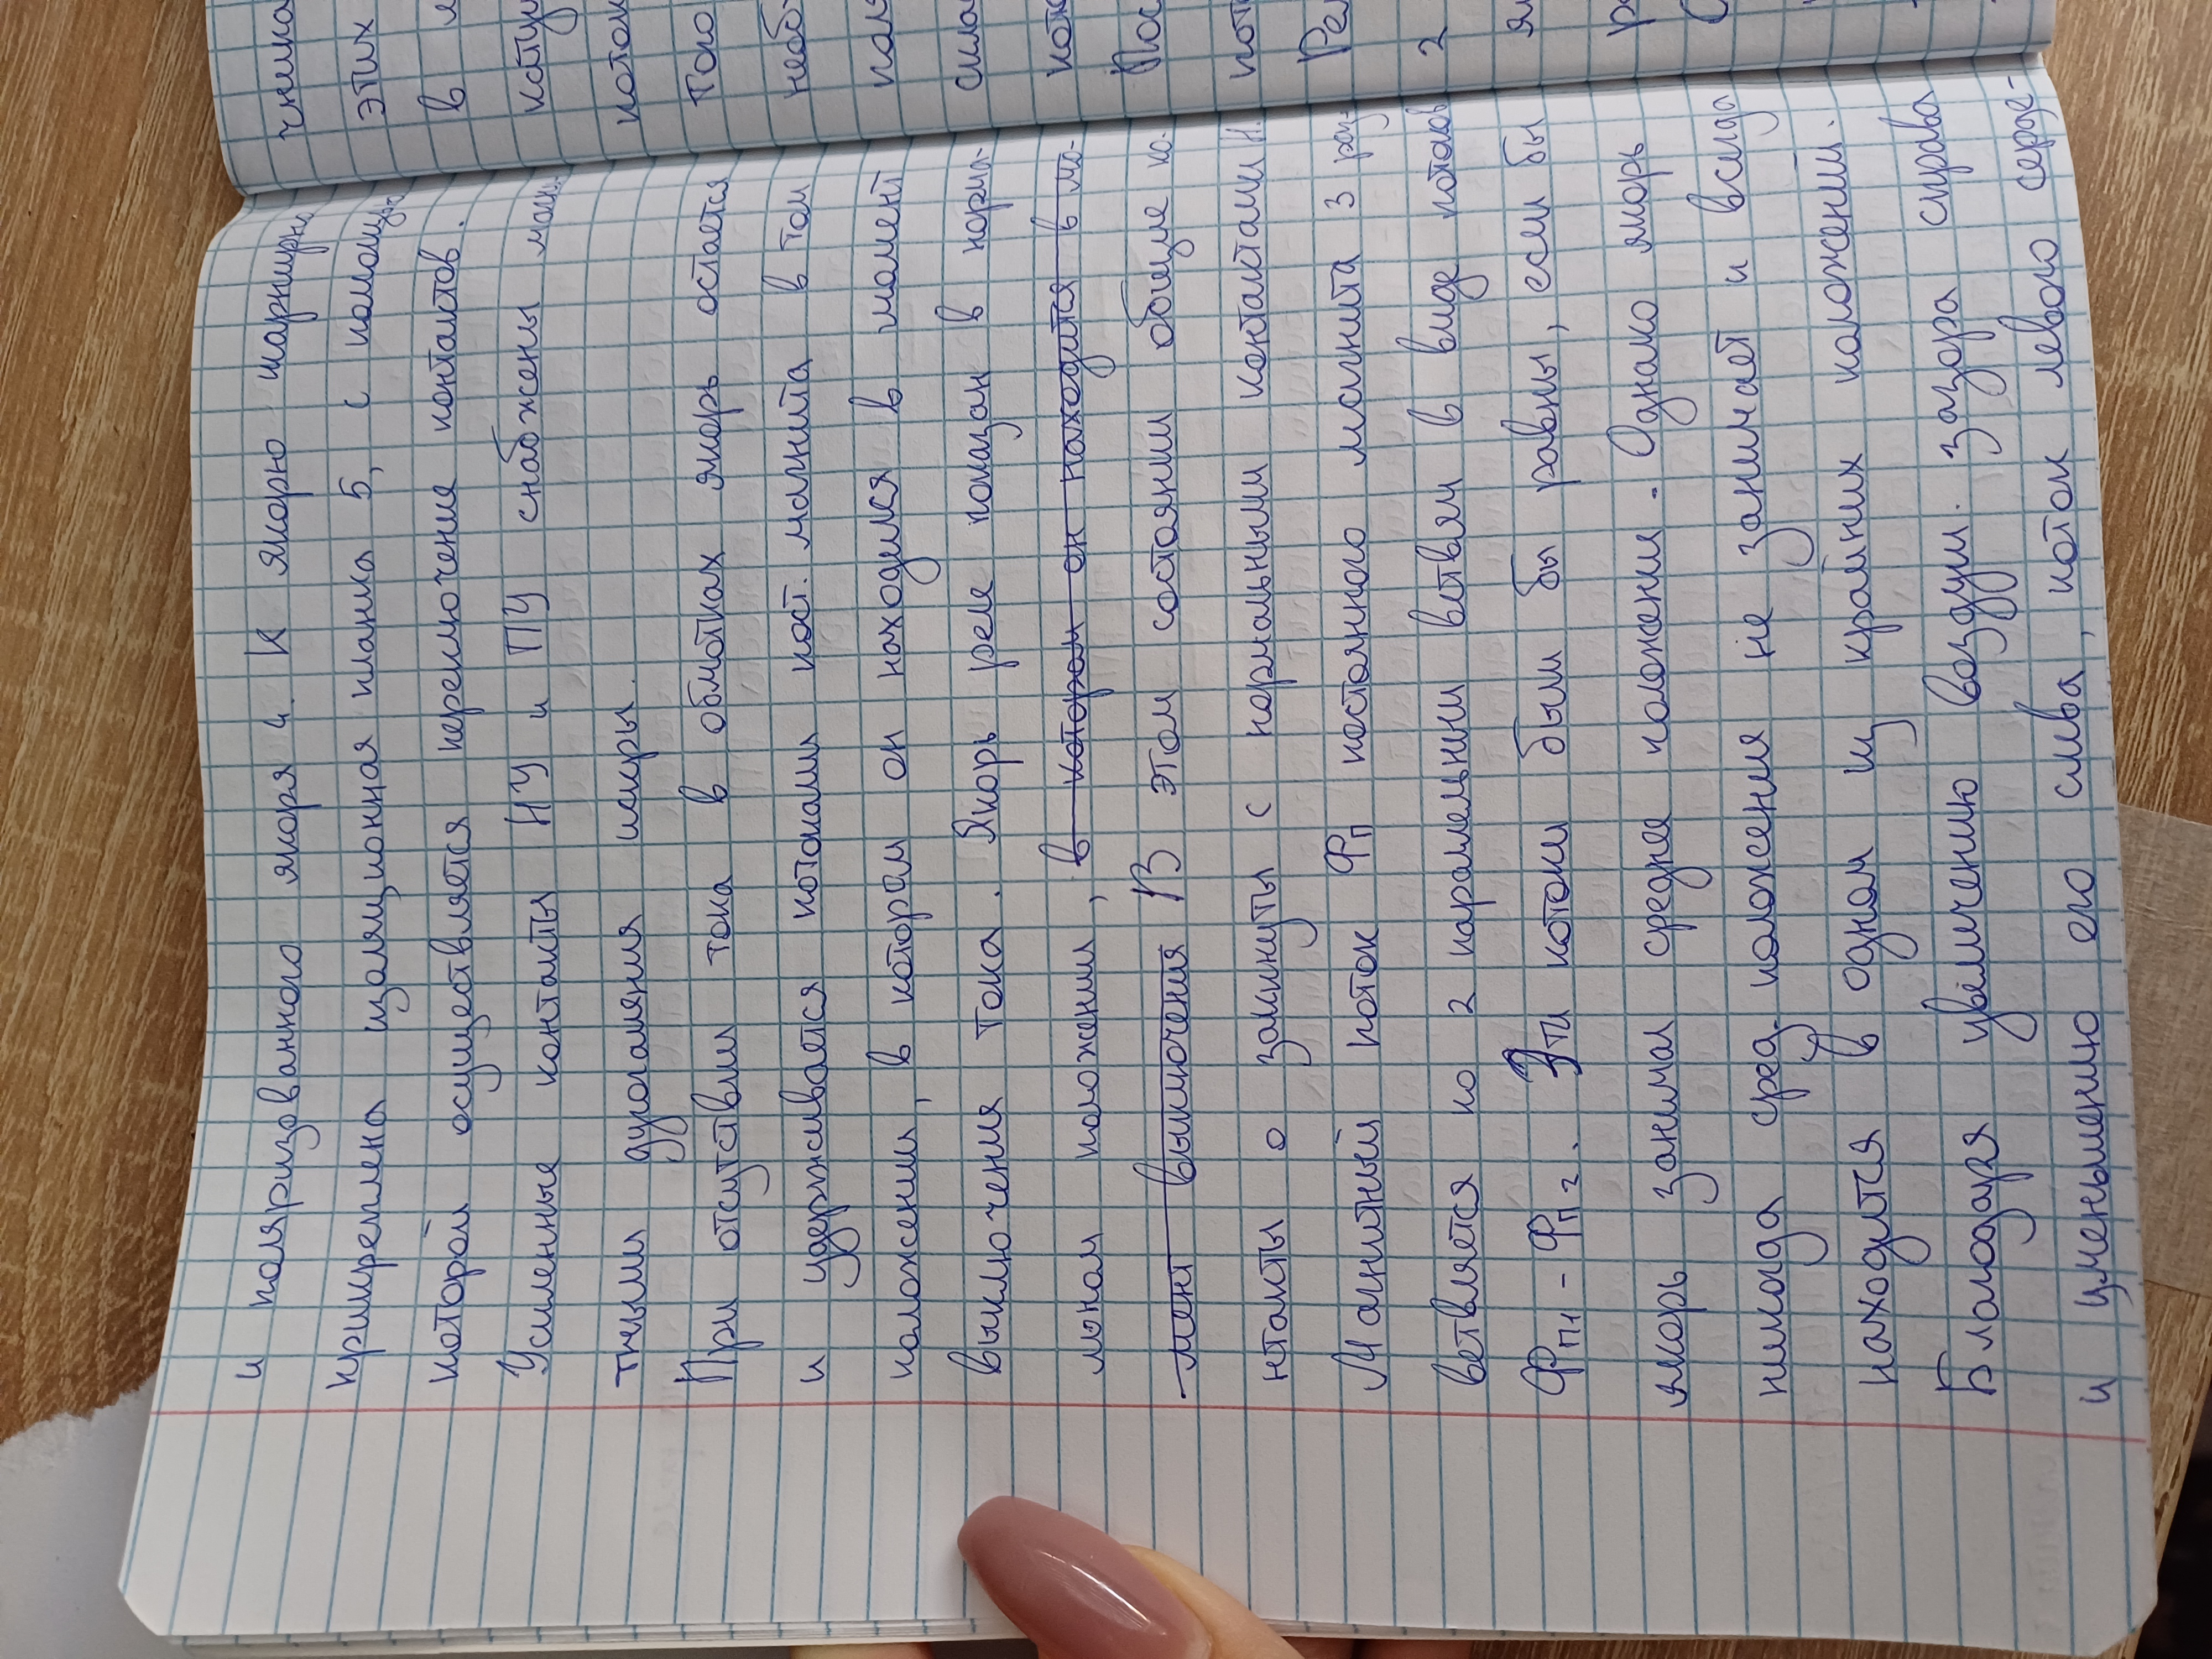 и поляризованного якоря 4. К якорю шарнирн
прикреплена изоляционная планка 5, с помощью
которой осуществляется переключение контактов.
Усиленные контакты НУ и ПУ снабжены магн.
тными дугогаяния искры.
При отсутствии тока в обмотках якорь остается
и удерживается потоками пост. магнита в том
положении, в котором он находился в момент
выключения тока. Якорь реле показан в норма-
льном положении, в котором он находится в мо-
мент выключения В этом состоянии общие ко-
нтакты о замкнуты с нормальными контактами Н.
Магнитный поток Фп постоянного магнита 3 раз-
ветвляется по 2 параллельним ветвям в виде потоков
Фп1 - Фп2. Эти потоки были бы равны, если бы
якорь занимал среднее положении. Однако якорь
никогда сред. положения не занимает и всегда
находится в одном из крайних положений.
Благодаря увеличению воздуш. зазора справа
и уменьшению его слива, поток левого серде-
чника
этих
в
Тока
2